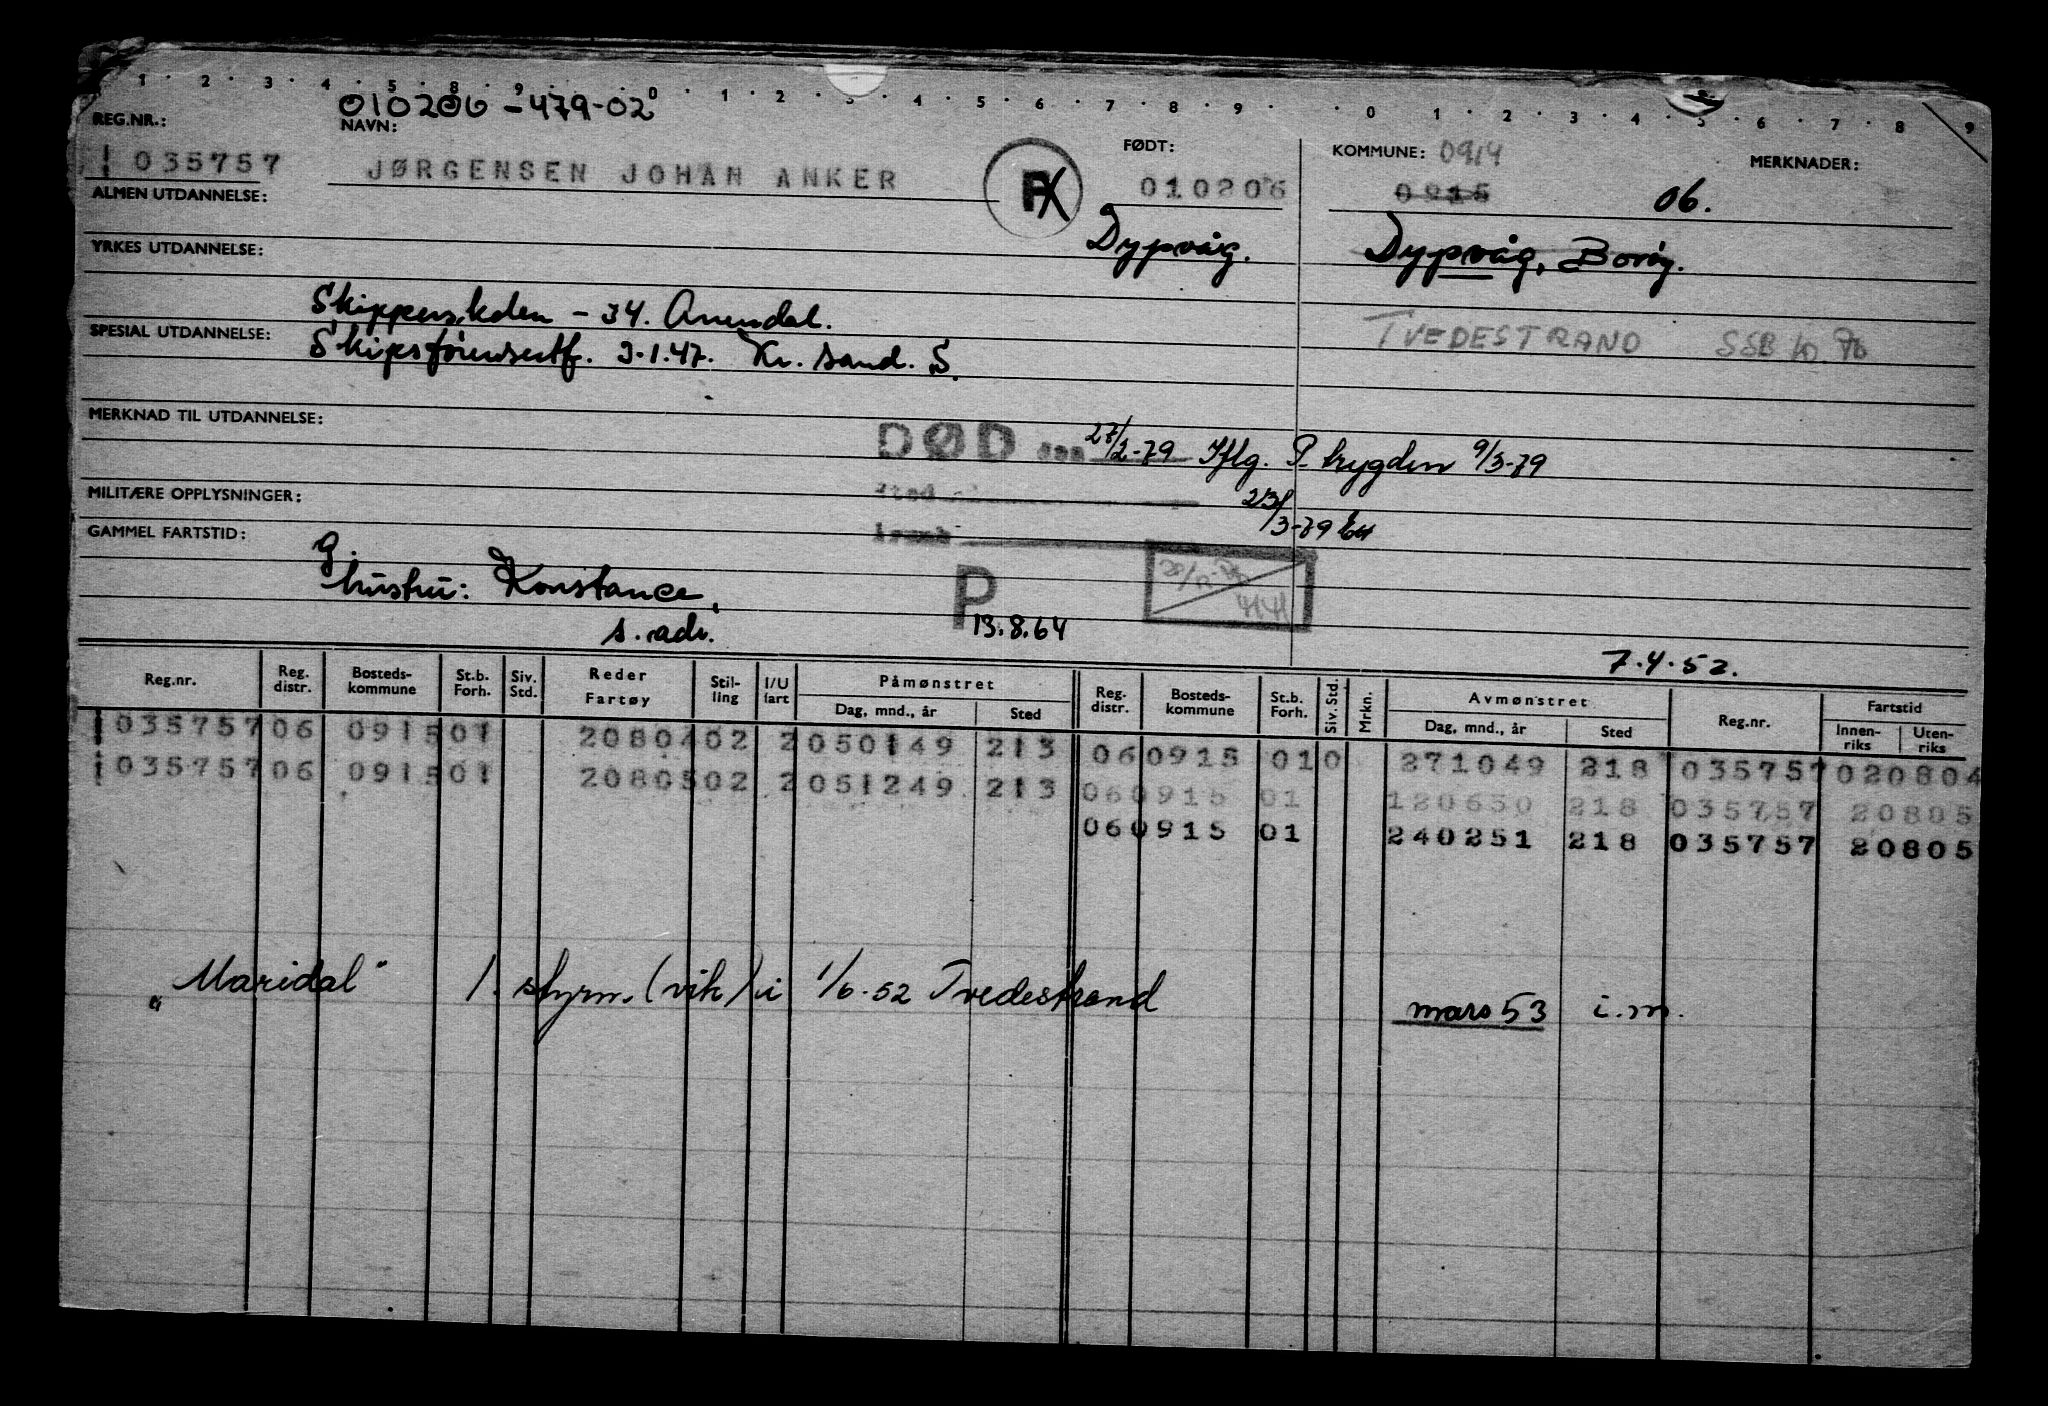 1 · 2 · 3 · 4 · 5 · 8 · 9 · 0 · 1 · 2 · 3 · 4 · 5 · 6 · 7 · 8 · 9 · 0 · 1 · 2 · 3 · 4 · 5 · 6 · 7 · 8 · 9
010206-479-02
REG.NR.: NAVN: FØDT: KOMMUNE: 0914 MERKNADER:
035757 JØRGENSEN JOHAN ANKER 010206 0915 06.
ALMEN UTDANNELSE:
Dypvåg. Dypvåg, Borøy.
YRKES UTDANNELSE:
Skipperskolen - 34. Arendal.
TVEDESTRAND SSB 10.76
SPESIAL UTDANNELSE: Skipsførersertf. 3.1.47. Kr. sand. S.
MERKNAD TIL UTDANNELSE:
DØD den 27/2-79 Iflg. P. trygden 9/3-79
MILITÆRE OPPLYSNINGER: sted
23/3-79
GAMMEL FARTSTID: årsak
g.
hustru: Konstance,
s. adr.
P 13.8.64
7.4.52.
Reg.nr. Reg. distr. Bosteds-kommune St.b. Forh. Siv. Std. Reder Fartøy Stil-ling I/U fart Påmønstret Dag, mnd., år Sted Reg. distr. Bosteds-kommune St.b. Forh. Siv. Std. Mrkn. Avmønstret Dag, mnd., år Sted Reg.nr. Fartstid Innen-riks Uten-riks
035757 06 0915 01 20804 02 2 050149 213 06 0915 01 0 271049 218 035757 020804
035757 06 0915 01 20805 02 2 051249 213 06 0915 01 120650 218 035757 20805
06 0915 01 240251 218 035757 20805
"Maridal" 1. styrm. (vik) i 1/6.52 Tvedestrand mars 53 i.m.